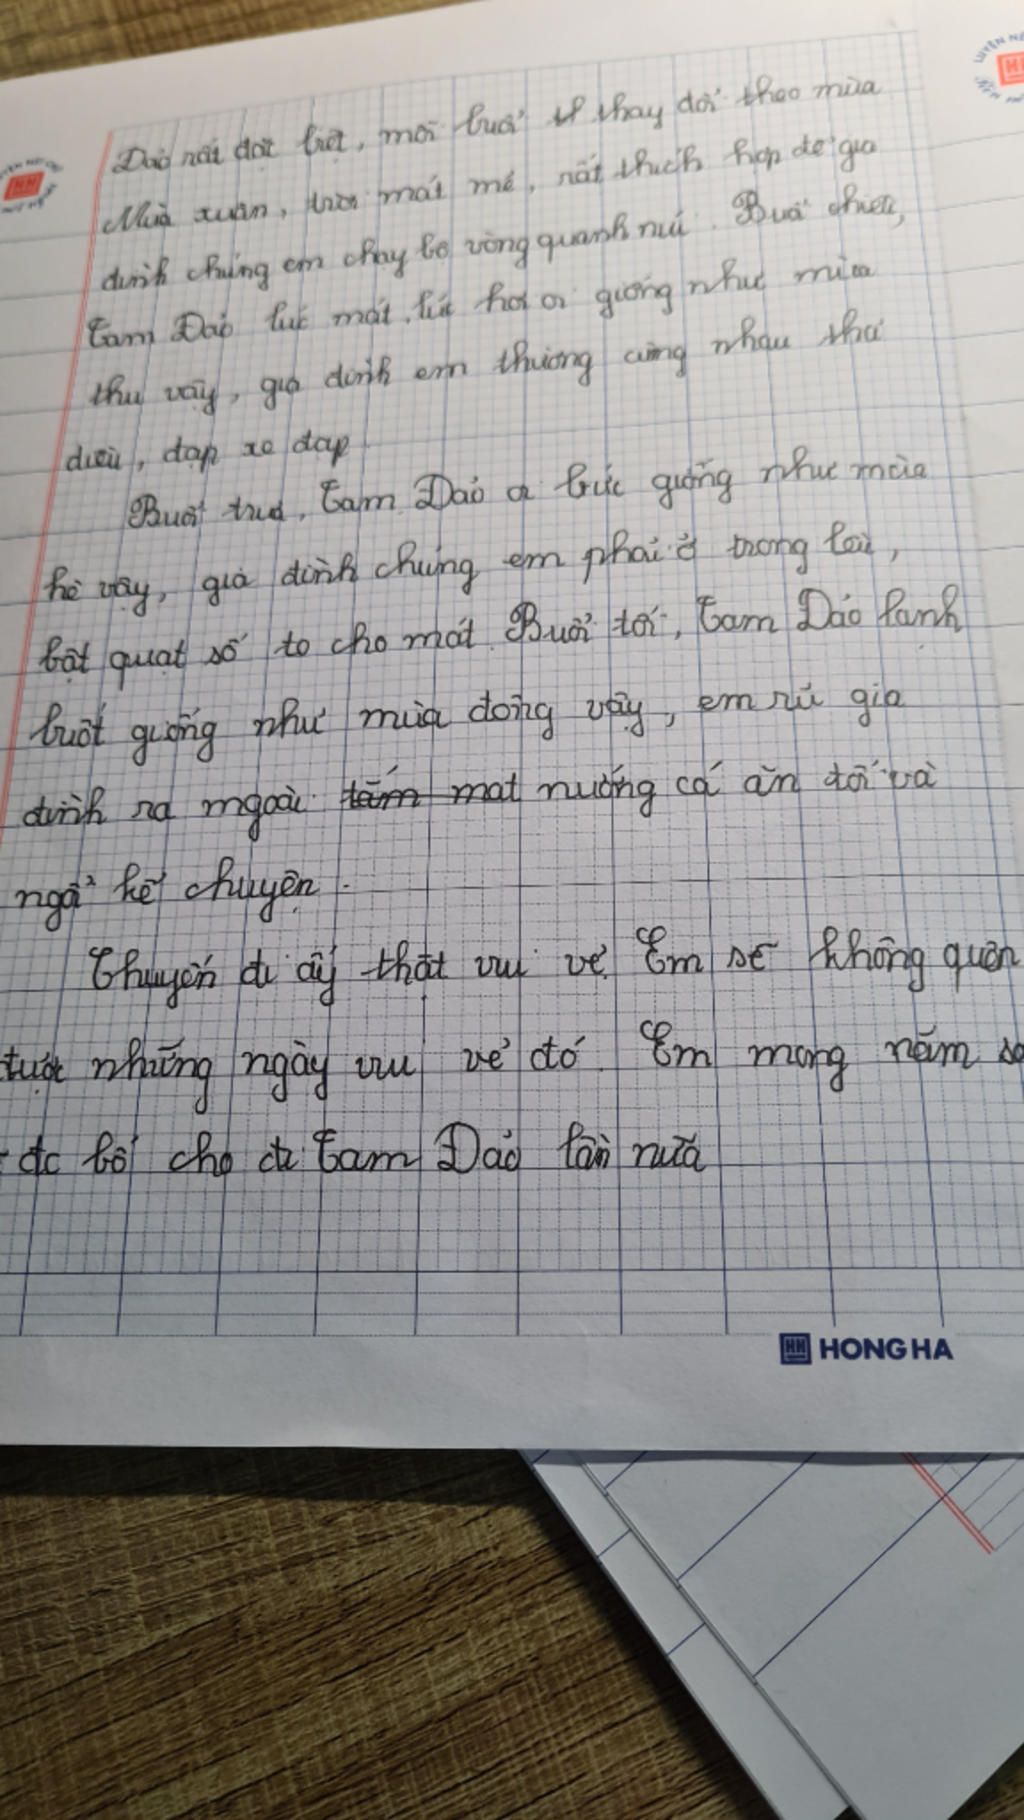 Đảo rất đặt biệt, mỗi buổi thay đổi theo mùa
Mùa xuân, trời mát mẻ, rất thích hợp để gia
đình chúng em chạy bộ vòng quanh núi. Buổi chiều,
Tam Đảo lúc mát, lúc hơi oi giống như mùa
thu vậy, gia đình em thường cùng nhau thả
diều, đạp xe đạp
Buổi trưa, Tam Đảo oi bức giống như mùa
hè vậy, gia đình chúng em phải ở trong lều,
bật quạt số to cho mát. Buổi tối, Tam Đảo lạnh
buốt giống như mùa đông vậy, em rủ gia
đình ra ngoài nướng cá ăn tối và
ngồi kể chuyện.
Chuyến đi ấy thật vui vẻ. Em sẽ không quên
được những ngày vui vẻ đó. Em mong năm
đc bố cho đi Tam Đảo lần nữa
HONG HA